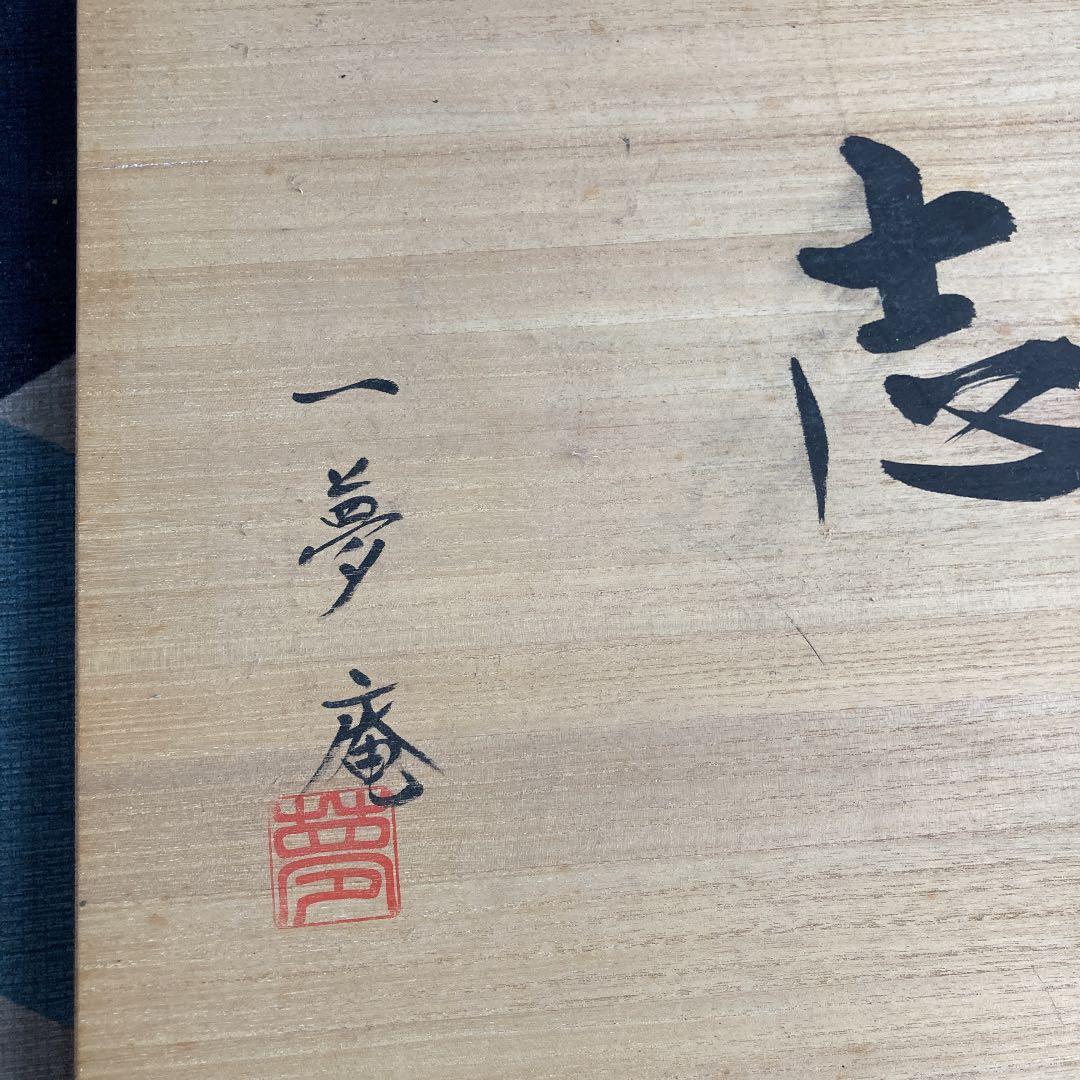 志
一夢庵
夢